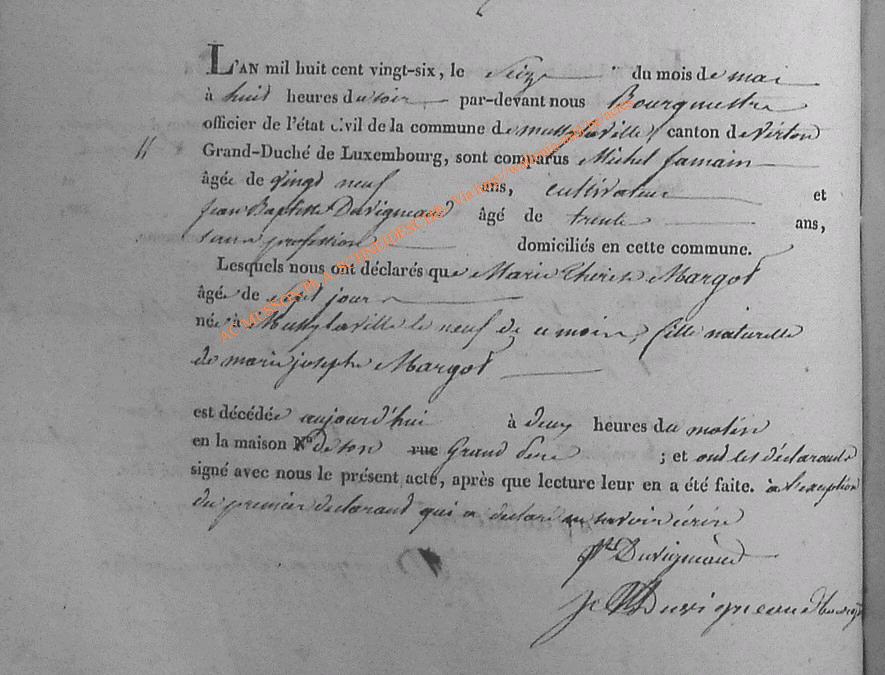 L'AN mil huit cent vingt-six, le Seize du mois de mai
à huit heures du soir par-devant nous Bourgmestre
officier de l'état civil de la commune de mussylaville, canton de Virton
Grand-Duché de Luxembourg, sont comparus Michel Jamain
âgée de vingt neuf ans, cultivateur et
Jean Baptiste Duvigneaud âgé de trente ans,
sans profession domiciliés en cette commune.
Lesquels nous ont déclarés que Marie Therese Margot
âgée de sept jour
née à Mussylaville le neuf de ce mois, fille naturelle
de marie josephe Margot
est décédée aujourd'hui à deux heures du matin
en la maison N° de son rue Grand Pere ; et ont les déclarants
signé avec nous le présent acte, après que lecture leur en a été faite. à l'exception
du premier declarant qui a declaré ne savoir écrire
Duvigneaud
Duvigneaud